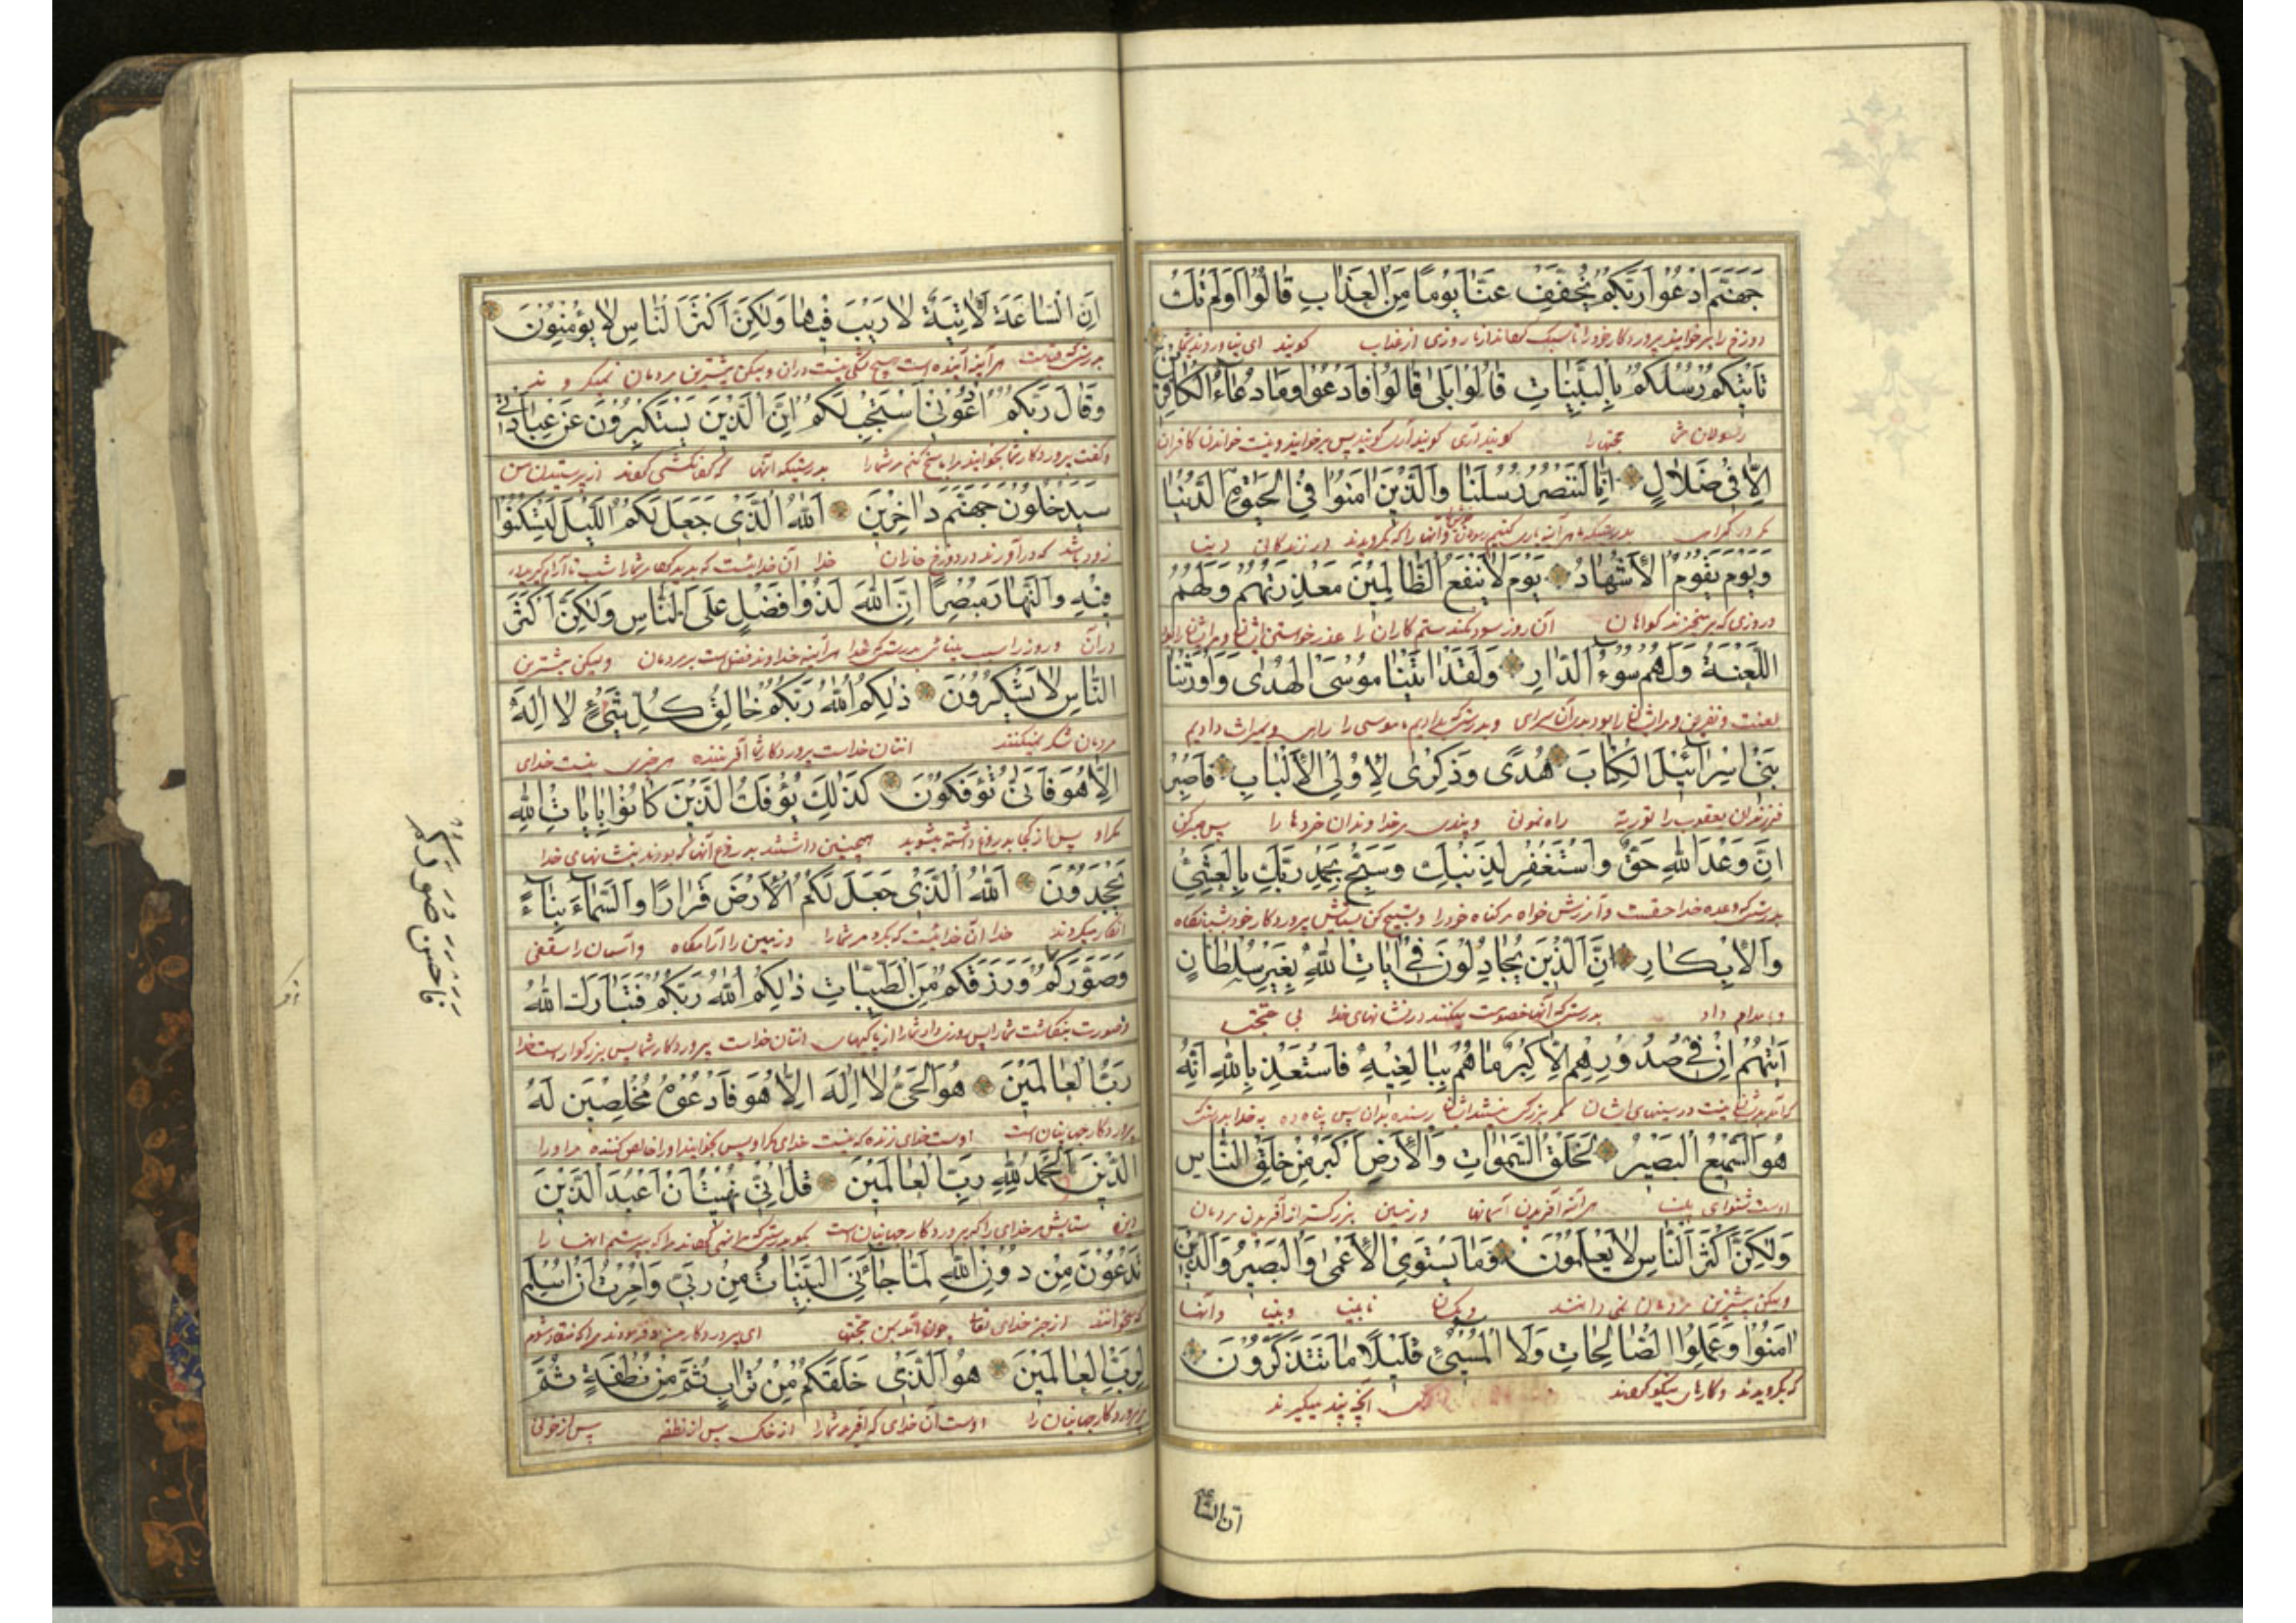 جَهَنَّمَ ادْعُوا رَبَّكُمْ يُخَفِّفْ عَنَّا يَوْمًا مِنَ الْعَذَابِ قَالُوا اَوَلَمْ تَكُ
دوزخ را بر خوانید پروردکار خود را تا سبک کرداند از ما روزی از عذاب کویند ای نیاوردند بشما
تَاْتِيكُمْ رُسُلُكُمْ بِالْبَيِّنَاتِ قَالُوا بَلٰى قَالُوا فَادْعُوا وَمَا دُعَاءُ الْكَافِرِينَ
رسولان شما حجتها را کویند آری کویند پس بر خوانید و نیست خواندن کافران
اِلَّا فِي ضَلَالٍ اِنَّا لَنَنْصُرُ رُسُلَنَا وَالَّذِينَ اٰمَنُوا فِي الْحَيٰوةِ الدُّنْيَا
مکر در کمراهی بدرستیکه ما هر آینه یاری کنیم رسولان و آنها را که کرویدند در زندکانی دنیا
وَيَوْمَ يَقُومُ الْاَشْهَادُ يَوْمَ لَا يَنْفَعُ الظَّالِمِينَ مَعْذِرَتُهُمْ وَلَهُمُ
و روزی که برخیزند کواهان آن روز سود نکند ستم کاران را عذر خواستن ایشان و مر ایشان را بود
اللَّعْنَةُ وَلَهُمْ سُوءُ الدَّارِ وَلَقَدْ اٰتَيْنَا مُوسَى الْهُدٰى وَاَوْرَثْنَا
لعنت و نفرین و مر ایشان را بود بدی آن سرای و بدرستیکه دادیم موسی را راهی و میراث دادیم
بَنِي اِسْرَائِيلَ الْكِتَابَ هُدًى وَذِكْرٰى لِاُولِي الْاَلْبَابِ فَاصْبِرْ
فرزندان یعقوب را توریة راه نمونی و پندی مر خداوندان خردها را پس صبر کن
اِنَّ وَعْدَ اللّٰهِ حَقٌّ وَاسْتَغْفِرْ لِذَنْبِكَ وَسَبِّحْ بِحَمْدِ رَبِّكَ بِالْعَشِيِّ
بدرستیکه وعده خدا حقست و آمرزش خواه مر کناه خود را و تسبیح کن بستایش پروردکار خود شبانکاه
وَالْاِبْكَارِ اِنَّ الَّذِينَ يُجَادِلُونَ فِي اٰيَاتِ اللّٰهِ بِغَيْرِ سُلْطَانٍ
و بامداد بدرستیکه آنها خصومت میکنند در نشانهای خدا بی حجت
اَتٰيهُمْ اِنْ فِي صُدُورِهِمْ اِلَّا كِبْرٌ مَا هُمْ بِبَالِغِيهِ فَاسْتَعِذْ بِاللّٰهِ اِنَّهُ
که آمد بدیشان نیست در سینهای ایشان مکر بزرکی نیستند ایشان رسنده بدان پس پناه ده به خدا بدرستیکه
هُوَ السَّمِيعُ الْبَصِيرُ لَخَلْقُ السَّمٰوَاتِ وَالْاَرْضِ اَكْبَرُ مِنْ خَلْقِ النَّاسِ
اوست شنوای بینا هر آینه آفریدن آسمانها و زمین بزرکتر از آفریدن مردمان
وَلٰكِنَّ اَكْثَرَ النَّاسِ لَا يَعْلَمُونَ وَمَا يَسْتَوِي الْاَعْمٰى وَالْبَصِيرُ وَالَّذِينَ
ولیکن بیشترین مردمان نمی دانند و یکسان نابینا و بینا و آنها
اٰمَنُوا وَعَمِلُوا الصَّالِحَاتِ وَلَا الْمُسِيءُ قَلِيلًا مَا تَتَذَكَّرُونَ
که بکرویدند و کارهای نیکو کردند آنچه پند میکیرند
ان السّا
اِنَّ السَّاعَةَ لَاٰتِيَةٌ لَا رَيْبَ فِيهَا وَلٰكِنَّ اَكْثَرَ النَّاسِ لَا يُؤْمِنُونَ
بدرستیکه قیامت هر آینه آینده است هیچ شکی نیست در آن ولیکن بیشترین مردمان نمیکروند
وَقَالَ رَبُّكُمُ ادْعُونِي اَسْتَجِبْ لَكُمْ اِنَّ الَّذِينَ يَسْتَكْبِرُونَ عَنْ عِبَادَتِي
و کفت پروردکار شما بخوانید مرا پاسخ کنم مر شما را بدرستیکه آنها که کردنکشی کنند از پرستیدن من
سَيَدْخُلُونَ جَهَنَّمَ دَاخِرِينَ اَللّٰهُ الَّذِي جَعَلَ لَكُمُ اللَّيْلَ لِتَسْكُنُوا
زود باشد که درآورند در دوزخ خواران خدا آن خدائیست که پدید کرد مر شما را شب تا آرام کیرید
فِيهِ وَالنَّهَارَ مُبْصِرًا اِنَّ اللّٰهَ لَذُو فَضْلٍ عَلَى النَّاسِ وَلٰكِنَّ اَكْثَرَ
در آن و روز را بدرستیکه خدا هر آینه خداوند فضل است بر مردمان ولیکن بیشترین
النَّاسِ لَا يَشْكُرُونَ ذٰلِكُمُ اللّٰهُ رَبُّكُمْ خَالِقُ كُلِّ شَيْءٍ لَا اِلٰهَ
مردمان شکر نمیکنند آنتان خداست پروردکار شما آفریننده هر چیزی نیست خدای
اِلَّا هُوَ فَاَنّٰى تُؤْفَكُونَ كَذٰلِكَ يُؤْفَكُ الَّذِينَ كَانُوا بِاٰيَاتِ اللّٰهِ
مکر او پس از کجا بدروغ داشته میشوید همچنین داشتند بدروغ آنها که بودند بنشانهای خدا
يَجْحَدُونَ اَللّٰهُ الَّذِي جَعَلَ لَكُمُ الْاَرْضَ قَرَارًا وَالسَّمَاءَ بِنَاءً
انکار میکردند خدا آن خدائیست که کرد مر شما را زمین را آرامکاه و آسمان را سقفی
وَصَوَّرَكُمْ وَرَزَقَكُمْ مِنَ الطَّيِّبَاتِ ذٰلِكُمُ اللّٰهُ رَبُّكُمْ فَتَبَارَكَ اللّٰهُ
و صورت بنکاشت شما را پس روزی داد شما را از پاکیهای آنتان خداست پروردکار شما پس بزرکوار است خدا
رَبُّ الْعَالَمِينَ هُوَ الْحَيُّ لَا اِلٰهَ اِلَّا هُوَ فَادْعُوهُ مُخْلِصِينَ لَهُ
پروردکار جهانیان است اوست خدای زنده که نیست خدای مکر او پس بخوانید او را خالص کننده مر او را
الدِّينَ اَلْحَمْدُ لِلّٰهِ رَبِّ الْعَالَمِينَ قُلْ اِنِّي نُهِيتُ اَنْ اَعْبُدَ الَّذِينَ
دین ستایش مر خدای را که پروردکار جهانیان است بکو بدرستیکه من نهی که پرستم آنها را
تَدْعُونَ مِنْ دُونِ اللّٰهِ لَمَّا جَاءَنِيَ الْبَيِّنَاتُ مِنْ رَبِّي وَاُمِرْتُ اَنْ اُسْلِمَ
که میخوانند از جز خدای تعا چون آمد بمن حجتها از پروردکار من و فرمودند مرا که منقاد شوم
لِرَبِّ الْعَالَمِينَ هُوَ الَّذِي خَلَقَكُمْ مِنْ تُرَابٍ ثُمَّ مِنْ نُطْفَةٍ ثُمَّ
مر پروردکار جهانیان را اوست آن خدای که آفرید شما را از خاک پس از نطفه پس از خونی
فَاَحْسَنَ صُوَرَكُمْ